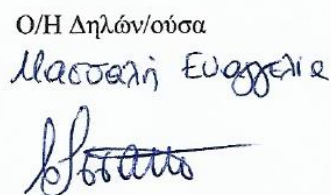 Ο/Η Δηλών/ούσα
Μασσαλή Ευαγγελία